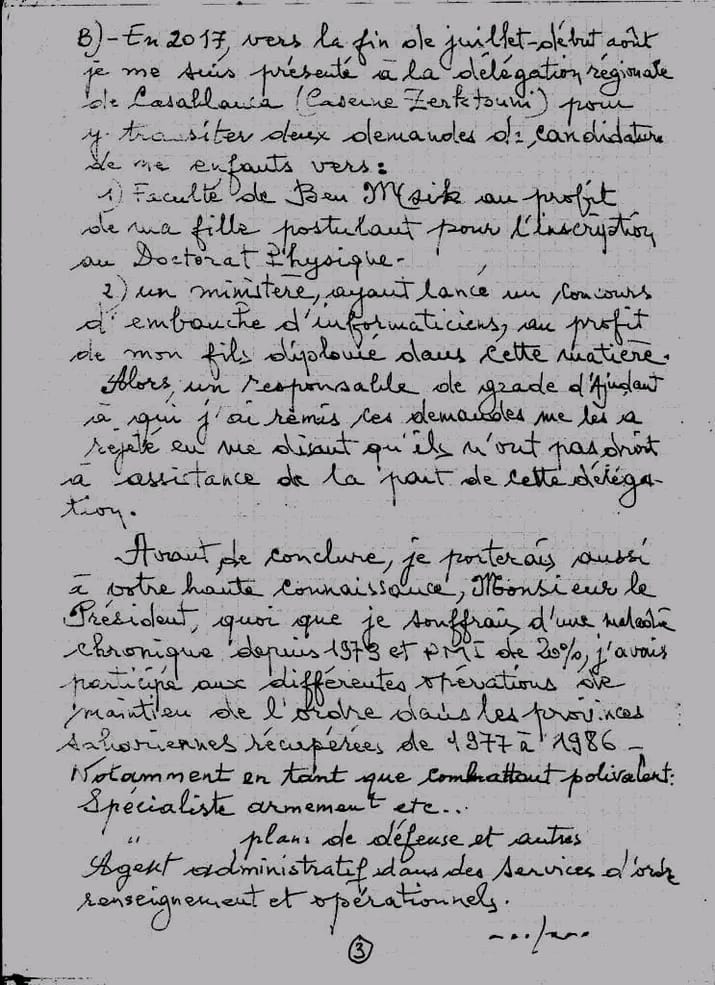 B)- En 2017, vers la fin de juillet-début août
je me suis présenté à la délégation régionale
de Casablanca (Caserne Zerktouni) pour
y transiter deux demandes de candidature
de me enfants vers :
1) Faculté de Ben Msik au profit
de ma fille postulant pour l'inscryption
au Doctorat Physique -
2) un ministère, ayant lancé un concours
d'embauche d'informaticiens, au profit
de mon fils diplomé dans cette matière.
Alors, un responsable de grade d'Ajudant
à qui j'ai rémis ces demandes me les a
rejeté en me disant qu'ils n'ont pas droit
à assistance de la part de cette déléga-
tion.
Avant de conclure, je porterais aussi
à votre haute connaissance, Monsieur le
Président, quoi que je souffrais d'une maladie
chronique depuis 1973 et PMI de 20%, j'avais
participé aux différentes opérations de
maintien de l'ordre dans les provinces
sahariennes récupérées de 1977 à 1986 -
Notamment en tant que combattant polivalent :
Spécialiste armement etc...
" plans de défense et autres
Agent administratif dans des services d'ordre
renseignement et opérationnels.
.../...
3